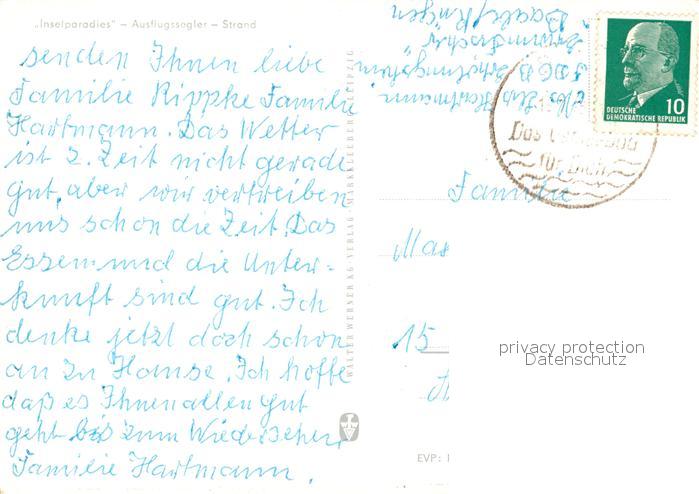 „Inselparadies" – Ausflugssegler – Strand
senden Ihnen liebe
Familie Rippke Familie
Hartmann. Das Wetter
ist z. Zeit nicht gerade
gut, aber wir vertreiben
uns schon die Zeit. Das
Essen und die Unter-
kunft sind gut. Ich
denke jetzt doch schon
an zu Hause. Ich hoffe
daß es Ihnen allen gut
geht bis zum Wiedersehen
Familie Hartmann.
WALTER WERNER KG · VERLAG · MARKKLEEBERG
Hartmann
FDGB
Baabe / Rügen
DEUTSCHE
DEMOKRATISCHE REPUBLIK
10
Das
für Dich
Familie
15
privacy protection
Datenschutz
EVP: